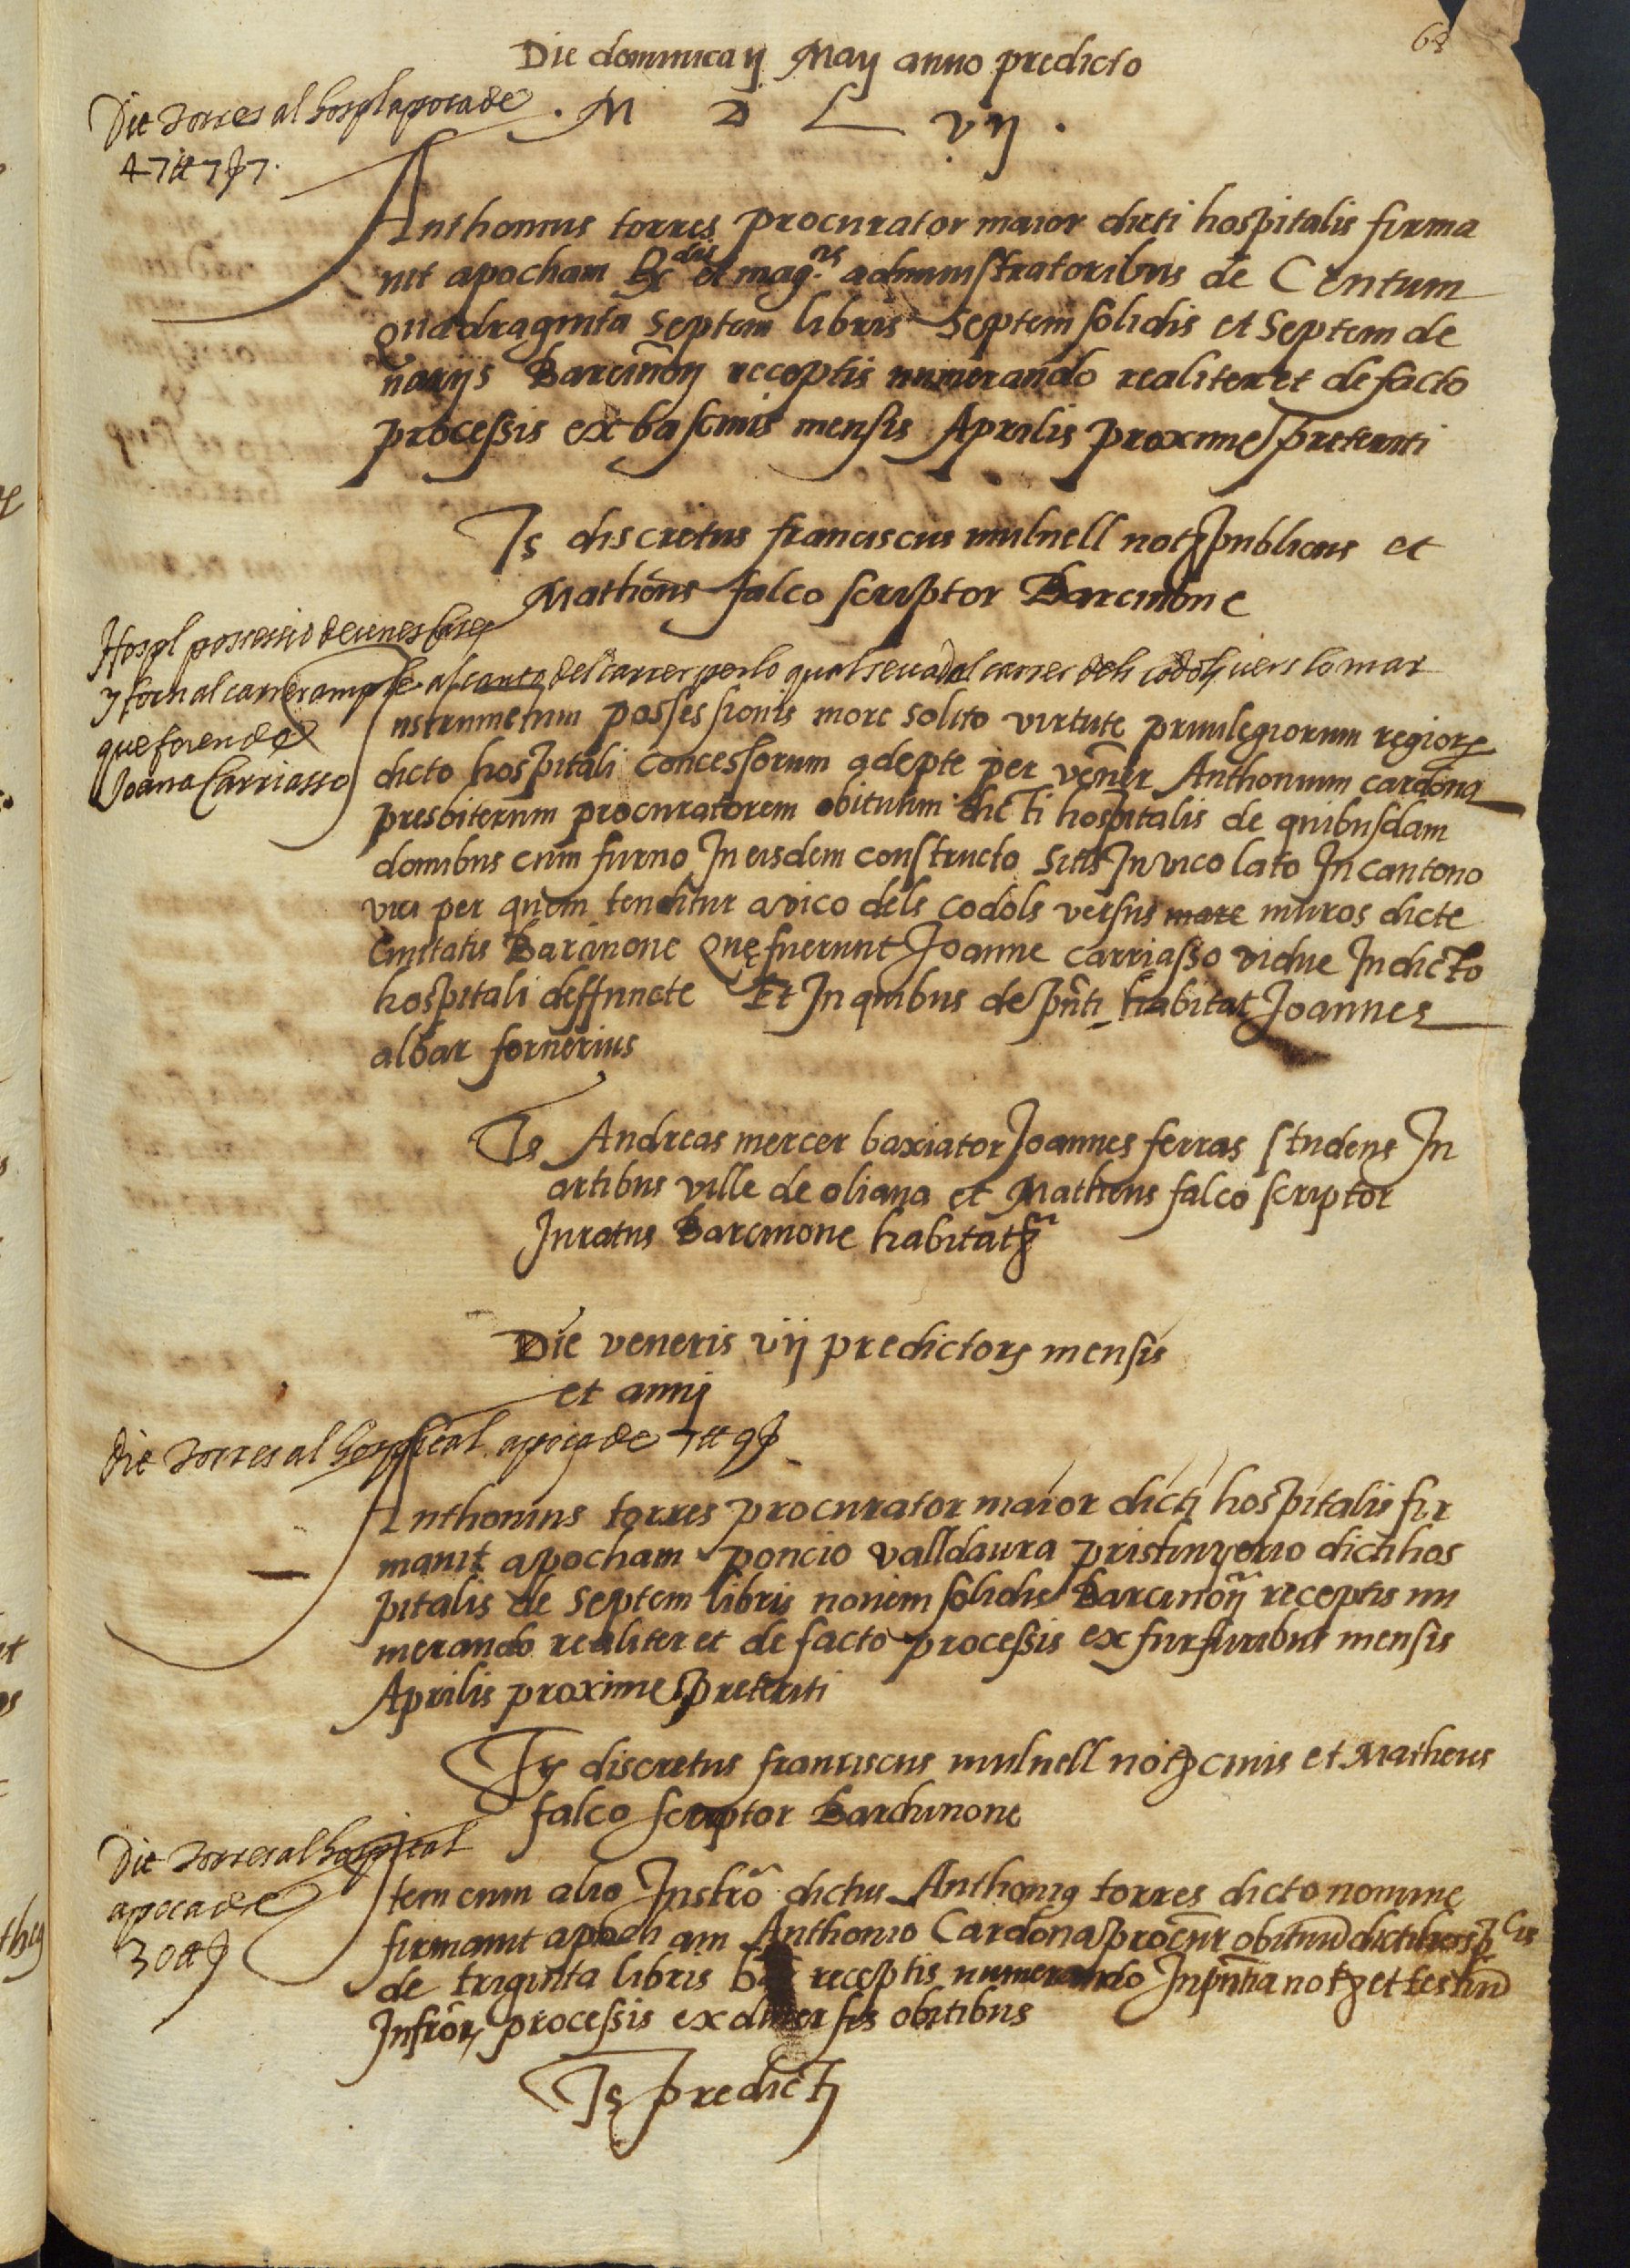 68
Die dominica ij May anno predicto
. M D L vij .
Dit torres al hospl apoca de
47 ll 7 s 7.
Anthonius torres procurator maior dicti hospitalis firma
uit apocham Rdis et magcis administratoribus de Centum
quadraginta septem libris septem solidis et septem de
narijs Barcinon̄ receptis numerando realiter et de facto
processis ex bascinis mensis Aprilis proxime preteriti
Ts discretus franciscus mulnell notȝ publicus et
Matheus falco scriptor Barcinone
Hospl possessio de unes cases
y forn al carrer ample al canto del carrer per lo qual se va del carrer dels codols vers lo mar
que foren de
Joana Carriasso
Instrumetum possessionis more solito virtute priuilegiorum regiorȝ
dicto hospitali concessorum adepte per vener̄ Anthonium cardona
presbiterum procuratorem obituum dicti hospitalis de quibusdam
domibus cum furno In eisdem constructo sitis In vico lato In cantono
vici per quem tenditur a vico dels codols versus mare muros dicte
Ciuitatis Barcinone Que fuerunt Joanne carriasso vidue In dicto
hospitali deffuncte Et In quibus de pn̄ti habitat Joannes
albar fornerius
Ts Andreas mercer baxiator Joannes ferras studens In
artibus ville de oliana et Matheus falco scriptor
Juratus Barcinone habitatȝ
Die veneris vij predictorȝ mensis
et annj
Dit torres al hospital apoca de 7 ll 9 s
Anthonius torres procurator maior dicti hospitalis fir
mauit apocham poncio valldaura pristinyerio dicti hos
pitalis de septem libris nouem solidis Barcinon̄ receptis nu
merando realiter et de facto processis ex furfuribus mensis
Aprilis proxime preteriti
Ts discretus franciscus mulnell notȝ ciuis et Matheus
falco scriptor Barchinone
Dit torres al hospital
apoca de
30 ll s
Item cum alio Instrō dictus Anthonius torres dicto nomine
firmauit apocham Anthonio Cardona procur̄ obituū dicti hosplis
de triginta libris receptis numerando In pn̄tia notȝ et testiū
Infrōrȝ processis ex diuersis obitibus
Ts predictj